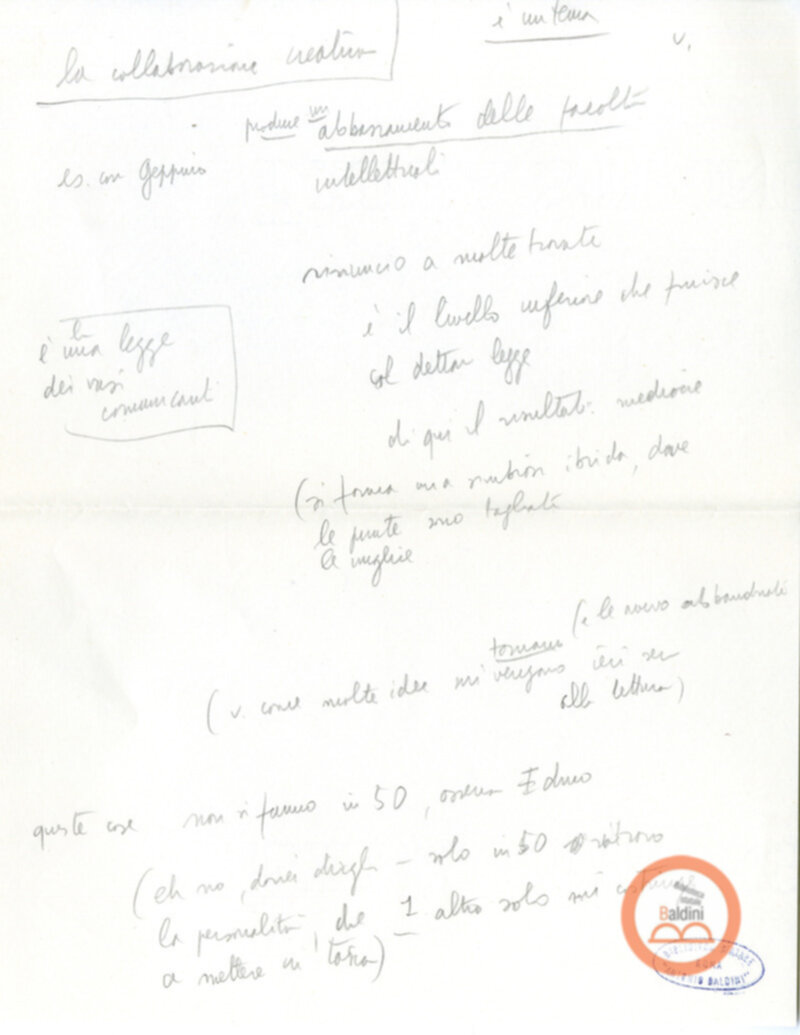 è un tema
v.
la collaborazione creativa
produce un abbassamento delle facoltà
es. con Geppino
intellettuali
rinuncio a molte trovate
è il livello inferiore che finisce
col dettar legge
è la legge
dei vasi
comunicanti
di qui il risultato: mediocre
(si forma una simbiosi ibrida, dove
le punte sono tagliate
le migliori
tornano (e le avevo abbandonate
(v. come molte idee mi vengono ieri ser
alla lettura)
queste cose non si fanno in 50, osserva
(eh no, dovrei dirgli – solo in 50 ritrovo
la personalità, che 1 altro solo mi costringe
a mettere in tasca)
Biblioteca
statale
Baldini
ROMA
"ANTONIO BALDINI"